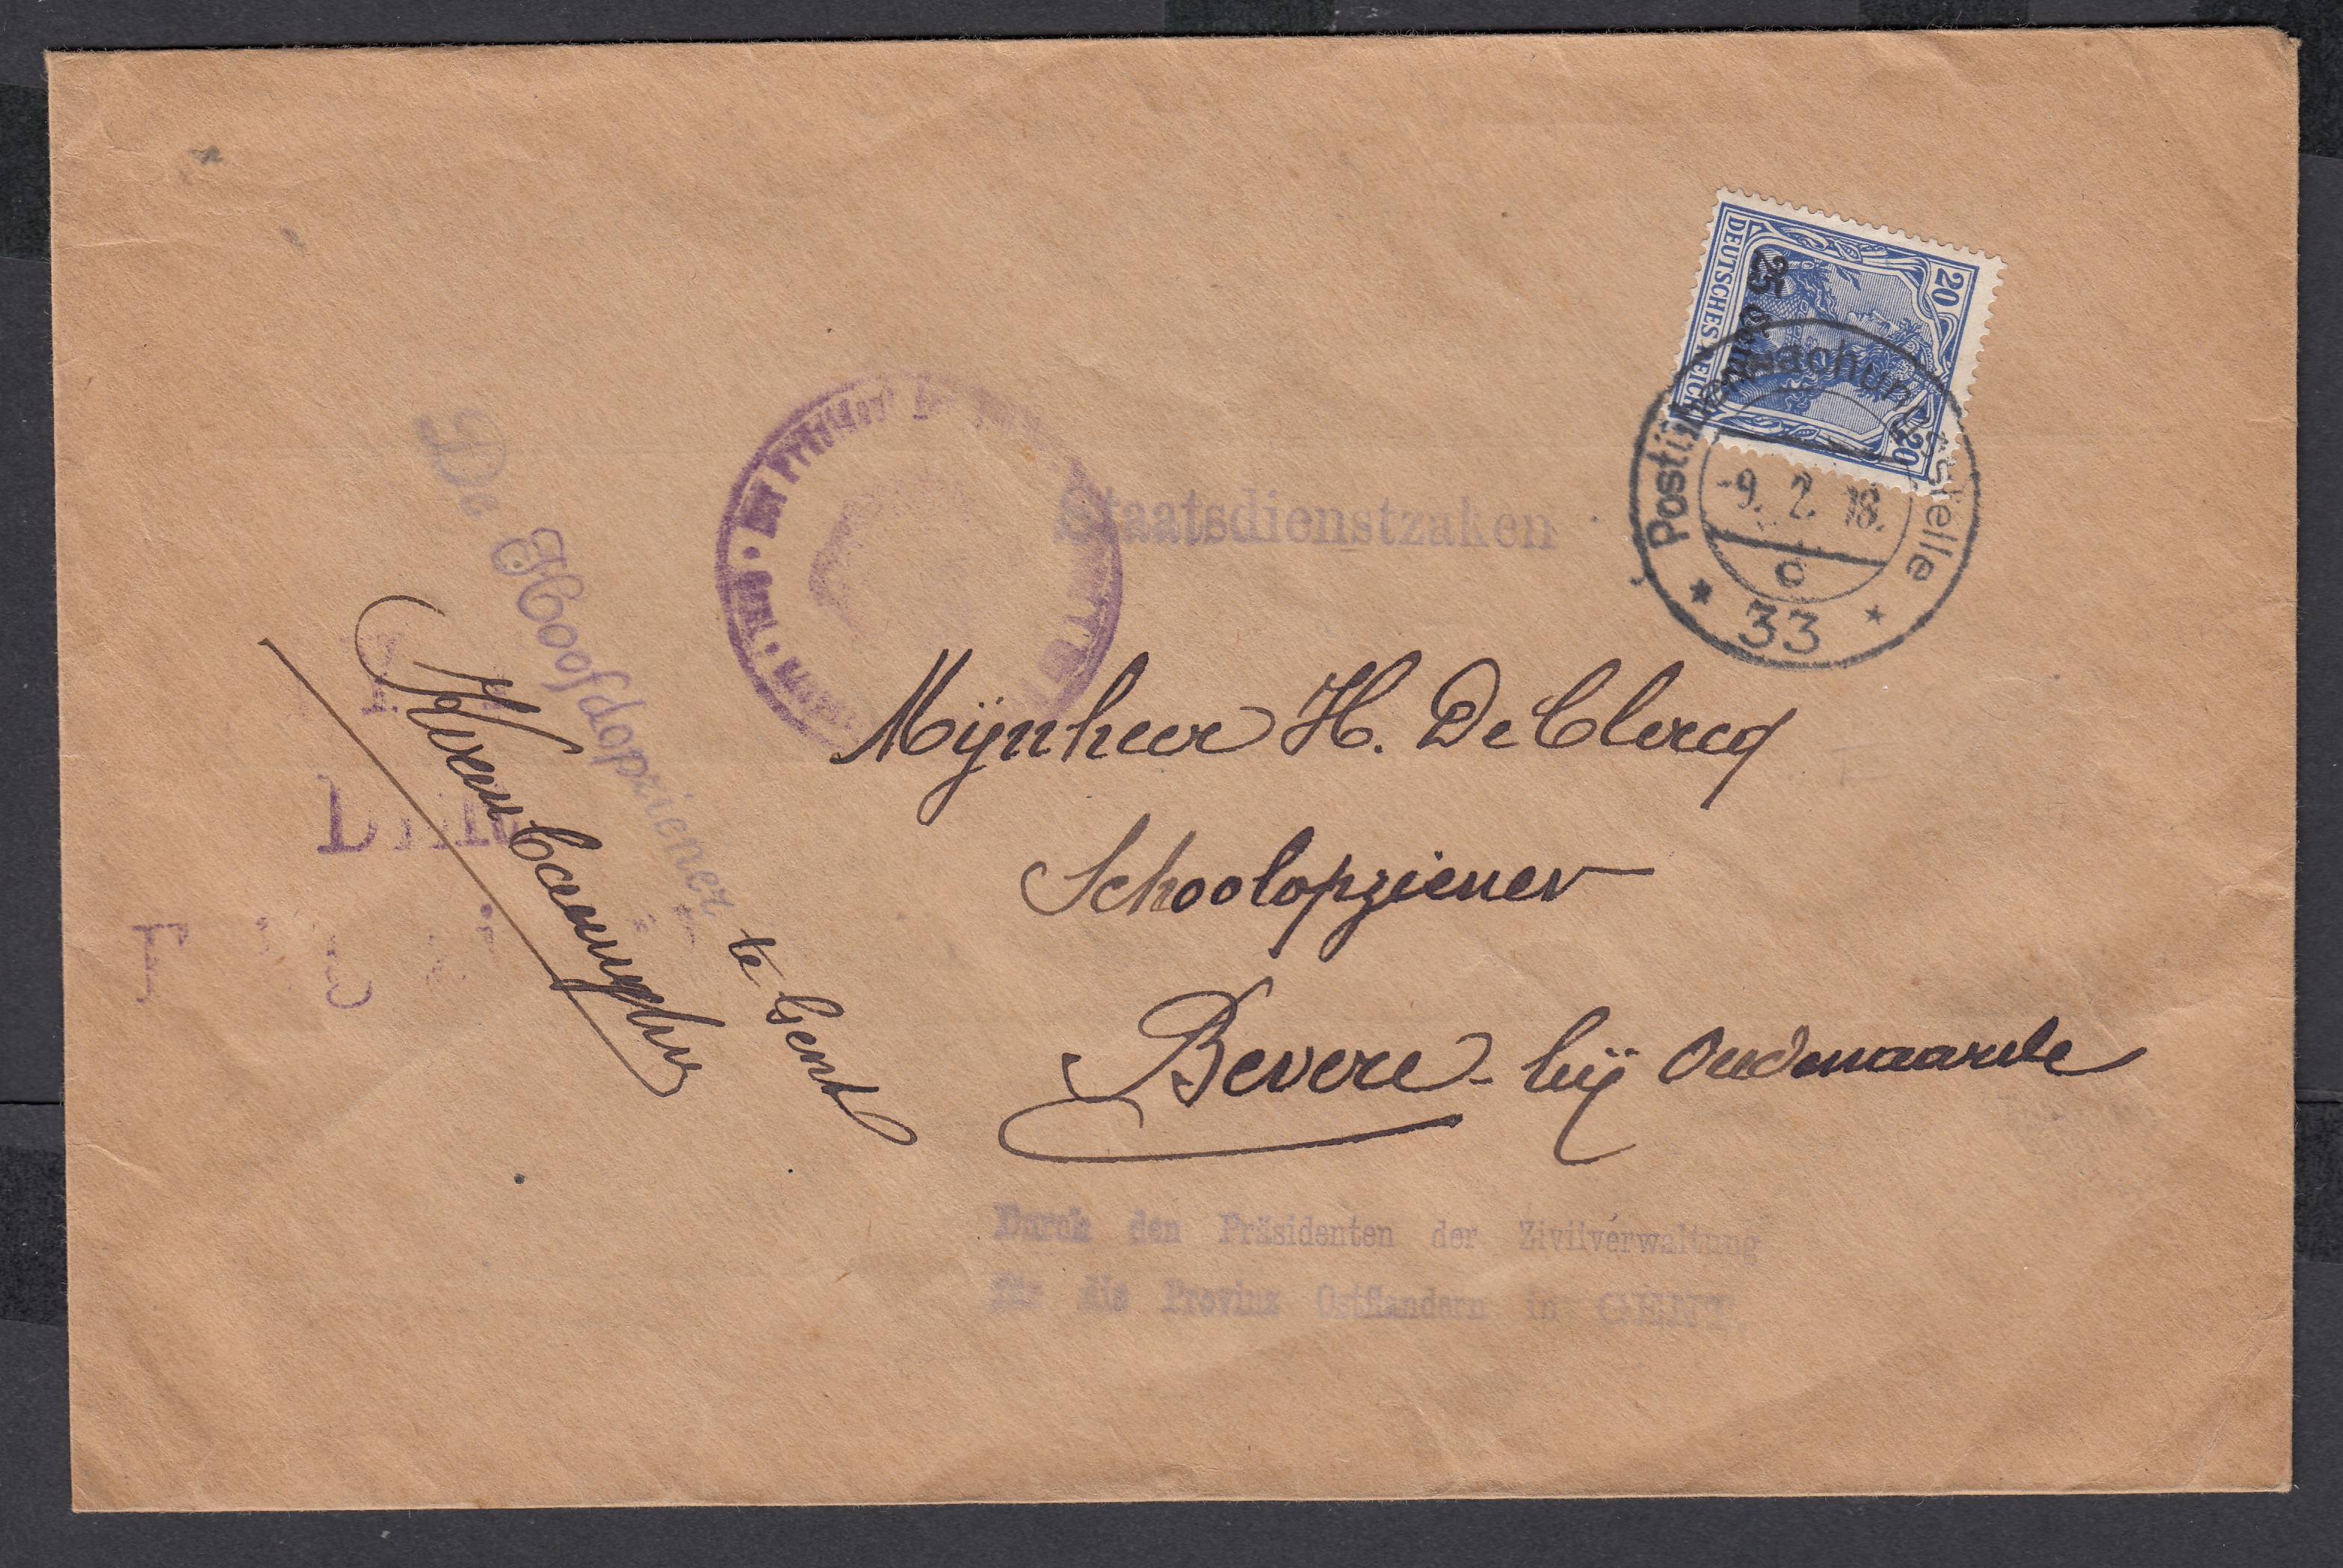 20
DEUTSCHES REICH
25 Cent.
20
Postüberwachungsstelle
-9. 2. 18.
c
* 33 *
Der Präsident
Staatsdienstzaken
De Hoofdopziener te Gent
Mijnheer H. De Clercq
Schoolopziener
Bevere - bij Oudenaarde
Durch den Präsidenten der Zivilverwaltung
für die Provinz Ostflandern in GENT.